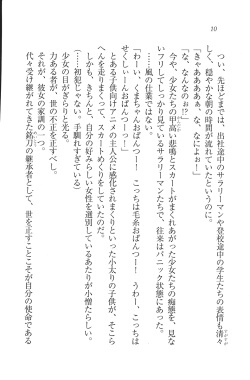 10
つい、先ほどまでは、出社途中のサラリーマンや登校途中の学生たちの表情も清々
しく、穏やかな朝の時間が流れていたというのに。
「な、なんなのぉ!?」
「きゃあああぁっ、な、なによぉー!」
今や、少女たちの甲高い悲鳴とスカートがまくれあがった少女たちの痴態を、見な
いフリしてしっかり見ているサラリーマンたちで、往来はパニック状態にあった。
……風の仕業ではない。
「わーい、くまちゃんおぱんつー! こっちは毛糸おぱんつー! うわー、こっちは
えっちぃおぱんつだーっ!」
とある子供向けアニメの主人公に感化されまくりといった小太りの子供が、そこら
へんを走りまくって、スカートめくりをしていたのだ。
しかも、きちんと、自分の好みらしい女性を選別しているあたりが小憎たらしい。
(……初犯じゃない。手馴れすぎている)
少女の目がぎらりと光る。
力ある者が、世の不正を正すべし。
それが、彼女の家訓の一つ。
代々受け継がれてきた銘刀の継承者として、世を正すことこそが自分の使命である